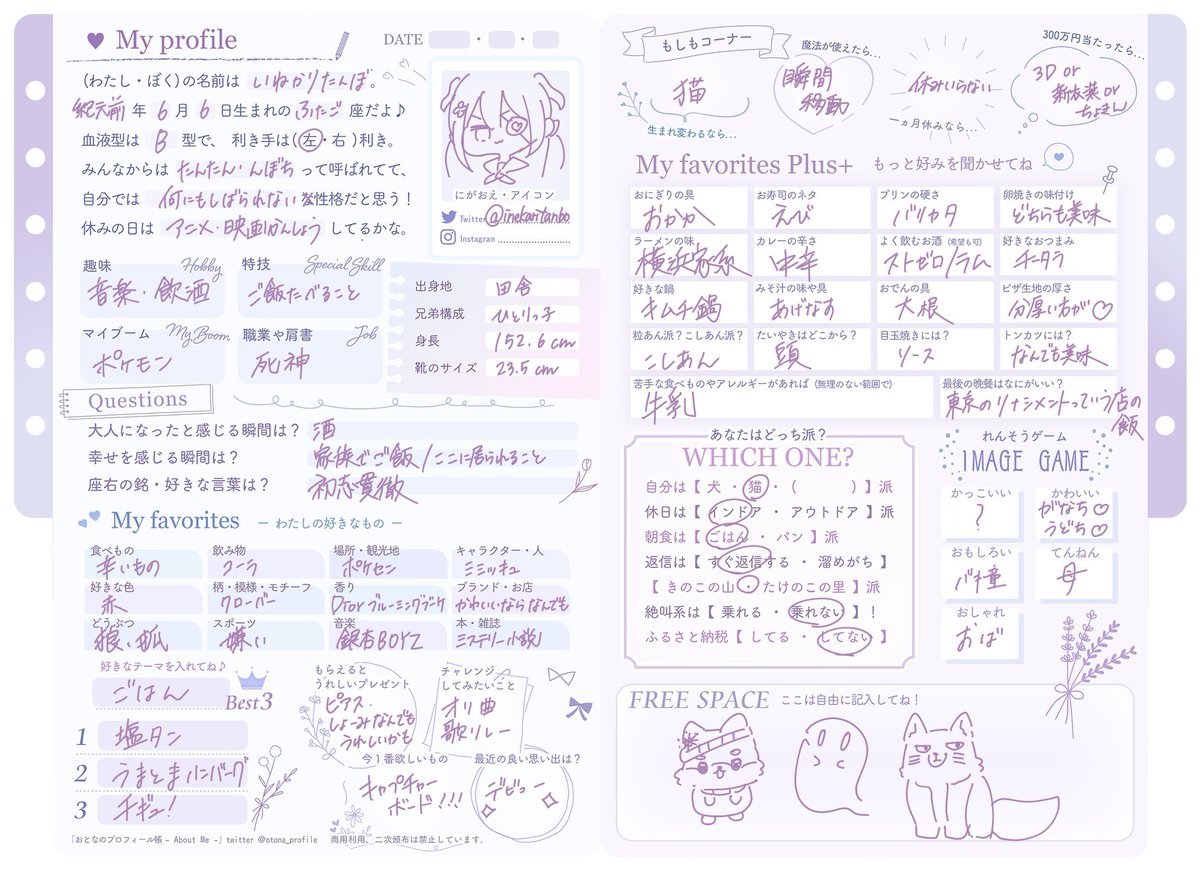 My profile
DATE ・ ・
(わたし・ぼく)の名前は いねかりたんぼ。
紀元前 年 6 月 6 日生まれの ふたご 座だよ♪
血液型は B 型で、 利き手は(左・右)利き。
みんなからは たんたん・んぼち って呼ばれてて、
自分では 何にもしばられない な性格だと思う！
休みの日は アニメ・映画かんしょう してるかな。
にがおえ・アイコン
Twitter @inekaritanbo
Instagram
趣味 Hobby
音楽・飲酒
特技 Special Skill
ご飯たべること
マイブーム My Boom
ポケモン
職業や肩書 Job
死神
出身地 田舎
兄弟構成 ひとりっ子
身長 152.6cm
靴のサイズ 23.5cm
Questions
大人になったと感じる瞬間は？ 酒
幸せを感じる瞬間は？ 家族でご飯/ここに居られること
座右の銘・好きな言葉は？ 初志貫徹
My favorites ー わたしの好きなもの ー
食べもの 辛いもの
飲み物 クーラ
場所・観光地 ポケセン
キャラクター・人 ミミッキュ
好きな色 赤
柄・模様・モチーフ クローバー
香り Dior ブルーミングブーケ
ブランド・お店 かわいいならなんでも
どうぶつ 狼・狐
スポーツ 嫌い
音楽 銀杏BOYZ
本・雑誌 ミステリー小説
好きなテーマを入れてね♪
ごはん
Best3
1 塩タン
2 うまとまハンバーグ
3 チギュ！
もらえると
うれしいプレゼント
ピアス・
しょーみなんでも
うれしいかも
チャレンジ
してみたいこと
オリ曲
歌リレー
今1番欲しいもの
キャプチャー
ボード!!!
最近の良い思い出は？
デビュー
「おとなのプロフィール帳 - About Me -」twitter @otona_profile 商用利用、二次頒布は禁止しています。
もしもコーナー
猫
生まれ変わるなら...
魔法が使えたら...
瞬間
移動
休みいらない
一ヵ月休みなら...
300万円当たったら...
3D or
新衣装 or
ちょきん
My favorites Plus+ もっと好みを聞かせてね
おにぎりの具 おかか
お寿司のネタ えび
プリンの硬さ バリカタ
卵焼きの味付け どちらも美味
ラーメンの味 横浜家系
カレーの辛さ 中辛
よく飲むお酒 (希望も可) ストゼロ/ラム
好きなおつまみ チータラ
好きな鍋 キムチ鍋
みそ汁の味や具 あげなす
おでんの具 大根
ピザ生地の厚さ 分厚い方が♡
粒あん派？こしあん派？ こしあん
たいやきはどこから？ 頭
目玉焼きには？ ソース
トンカツには？ なんでも美味
苦手な食べものやアレルギーがあれば (無理のない範囲で)
牛乳
最後の晩餐はなにがいい？
東京のリナシメントっていう店の
飯
あなたはどっち派？
WHICH ONE?
自分は【 犬 ・ 猫 ・ ( ) 】派
休日は【 インドア ・ アウトドア 】派
朝食は【 ごはん ・ パン 】派
返信は【 すぐ返信する ・ 溜めがち 】
【 きのこの山 ・ たけのこの里 】派
絶叫系は【 乗れる ・ 乗れない 】！
ふるさと納税【 してる ・ してない 】
れんそうゲーム
IMAGE GAME
かっこいい ？
かわいい がなち♡
うどち♡
おもしろい バキ憧
てんねん 母
おしゃれ おば
FREE SPACE ここは自由に記入してね！